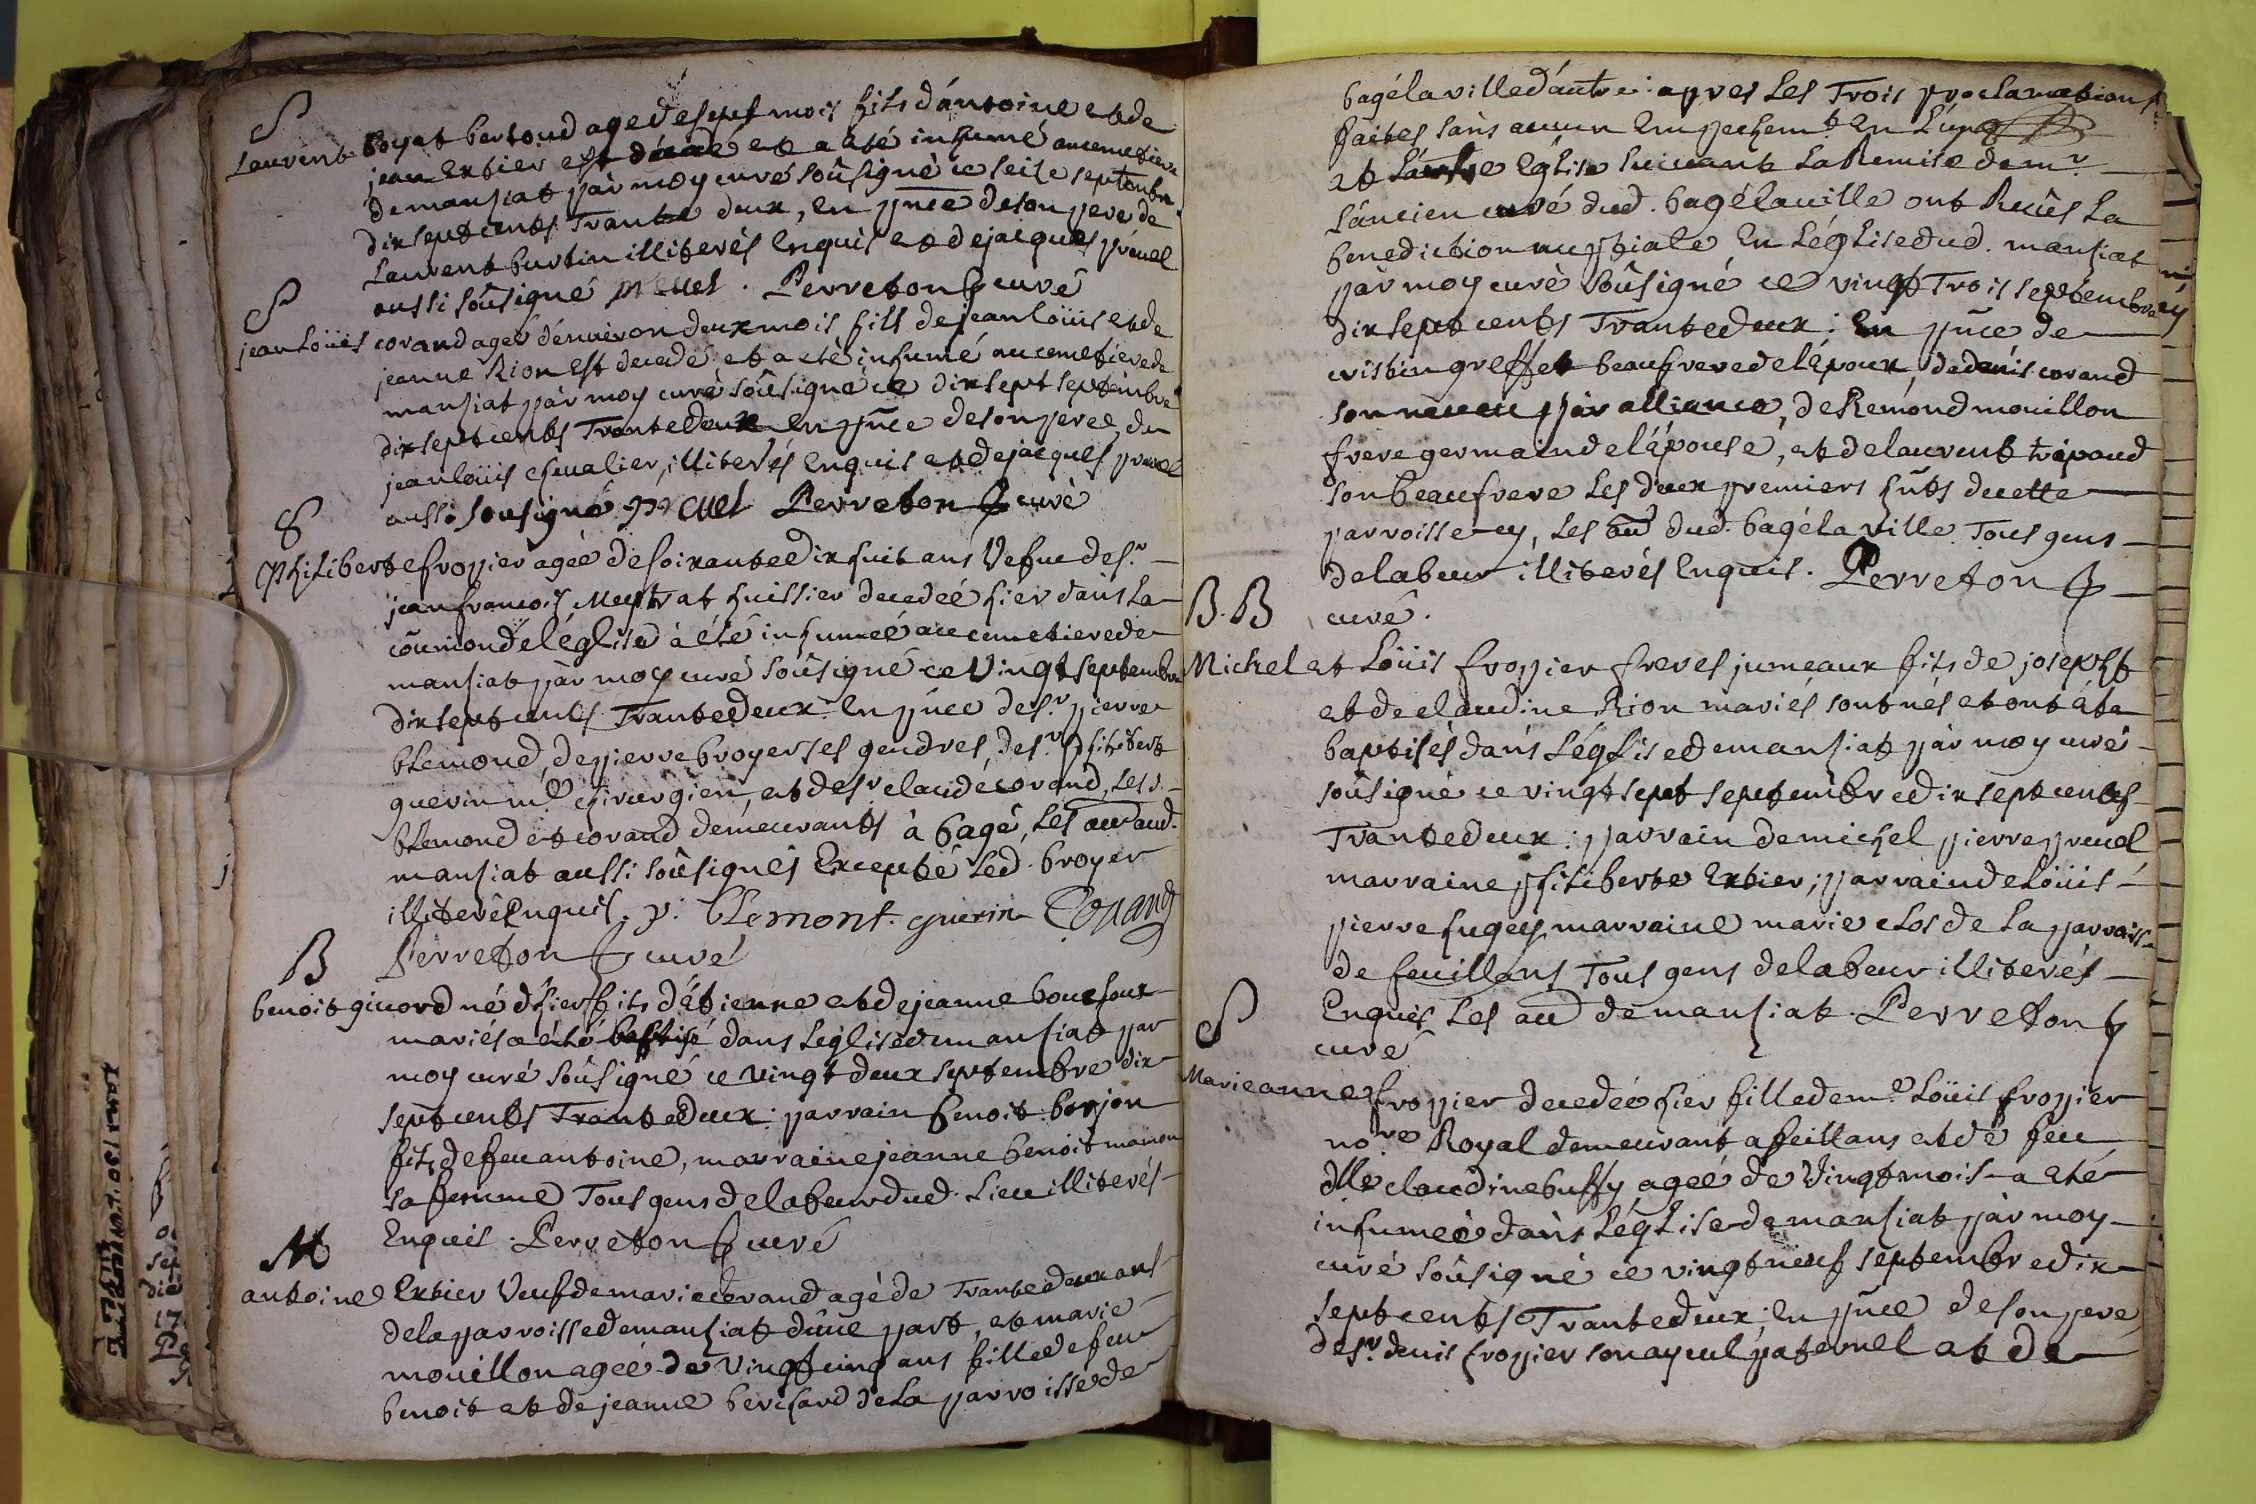 S
Laurent boyat bertoud agé de sept mois fils d'antoine et de
jean Extier est décédé et a été inhumé au cemetiere
de manziat par moy curé soûsigné ce seize septembre
dix sept cents Trante deux, En pñce de son pere de
Laurent burtin illiterés Enquis et de jacques pruel
aussi soûsigné pruel . Perreton curé
S
jean Loüis corand agé d'environ deux mois fils de jean loüis et de
jeanne Rion Est decedé et a eté inhumé au cemetiere de
manziat par moy curé soûsigné ce dix sept septembre
dix sept cents Trante deux En pñce de son pere, de
jean loüis chevalier, illiterés Enquis et de jacques pruel
aussi sousigné pruel Perreton curé
S
Philiberte fropier ageé de soixante dix huit ans Vefue de s.r
jean françois Meytrat huissier decedeé hier dans la
coñmion de l'église à été inhumeé au cemetiere de
manziat par moy curé soûsigné ce Vingt septembre
dix sept cents Trante deux. En pñce de s.r pierre
blemond, de pierre broyer ses gendres, de s.r philibert
guerin m.e chirurgien, et de s.r claude corand, les s.
blemond et corand demeurants à bagé, Les au aud.
manziat aussi soûsignés Excepté led. broyer
illiteré Enquis. p. blemont. guerin Corand
Perreton curé
B
benoit giuord né d'hier fils d'étienne et de jeanne bouchoux
mariés a été baptisé dans l'eglise de manziat par
moy curé soûsigné ce vingt deux septembre dix
sept cents Trante deux : parrain benoit borjon
fils de feu antoine, marraine jeanne benoit mamon
sa femme Tous gens de labeur dud. Lieu illiterés
Enquis . Perreton curé
M
antoine Extier Veuf de marie corand agé de Trante deux ans
de la parroisse de manziat d'une part, et marie
mouillon ageé de Vingt cinq ans fille de feu
benoit et de jeanne berchard de la parroisse de
bagé la ville d'autre : apres Les Trois proclamations
faites sans aucun Empechem.t En L'une
et L'autre Eglise suiuant La Remise de m.r
L'ancien curé dud. bagé la uille ont Reçûs La
benediction nuptiale En L'églis dud. manziat
par moy curé soûsigné ce vingt Trois septembre
dix sept cents Trante deux : En pñce de
cristin greffet beaufrere de l'époux, de denis corand
son neueu par alliance, de Remond mouillon
frere germain de l'épouse, et de laurent trépoud
son beaufrere Les deux premiers hñts de cette
parroisse-cy, Les au dud. bagé la ville Tous gens
de labeur illiterés Enquis. Perreton
curé.
B. B
Michel et Loüis fropier freres jumeaux fils de joseph
et de claudine Rion mariés sont nés et ont été
baptisés dans L'églis de manziat par moy curé
soûsigné ce vingt sept septembre dix sept cents
Trante deux : parrain de michel pierre pruel
marraine philiberte Extier ; parrain de Loüis
pierre hugey marraine marie clos de la parroisse
de feuillens Tous gens de labeur illiterés
Enquis Les au de manziat . Perreton
curé
S
Marie anne fropier decedeé hier fille de m.e Loüis fropier
no.re Royal demeurant a feillans et de feu
dlle claudine buffy ageé de Vingt mois a eté
inhumeé dans L'église de manziat par moy
curé soûsigné ce vingt neuf septembre dix
sept cents Trante deux ; En pñce de son pere,
de s.r denis fropier son ayeul paternel et de